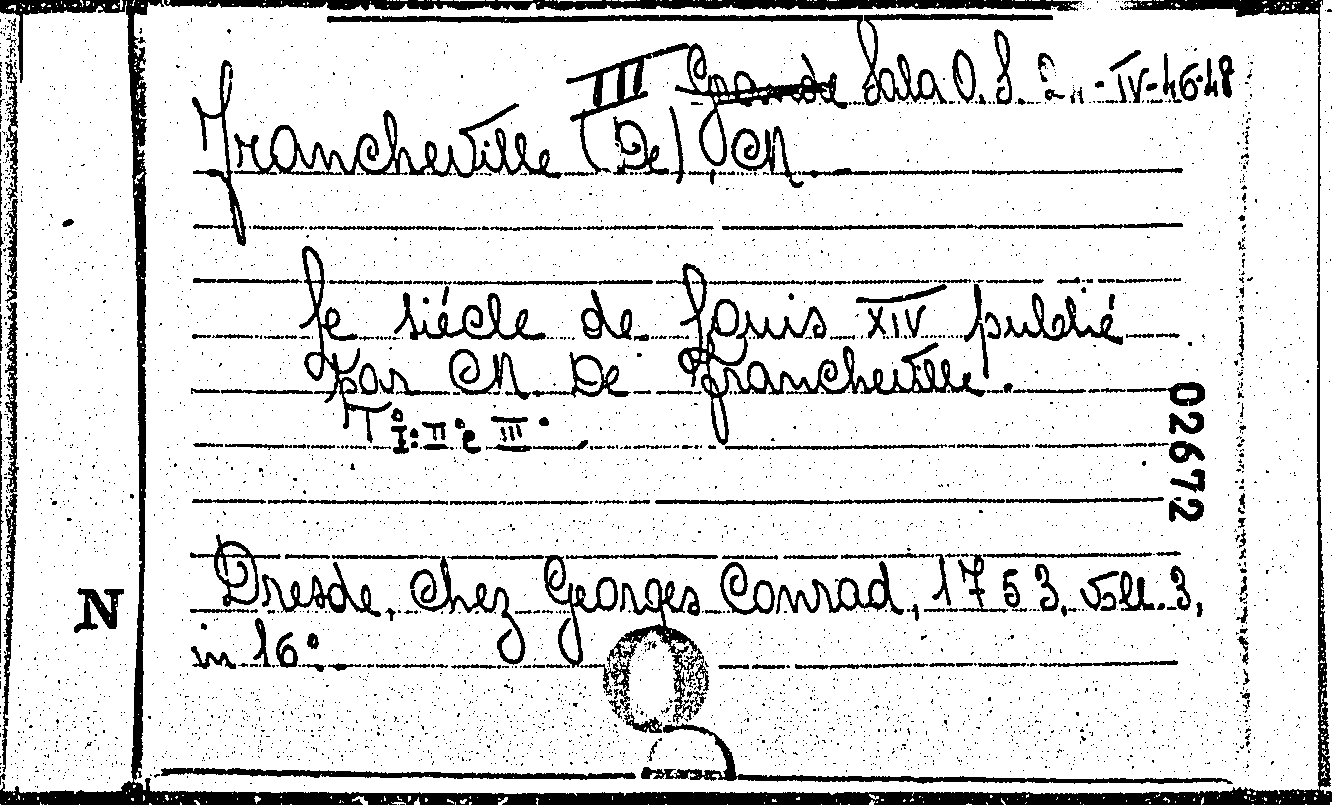 III Grande Sala O. S. 2 -IV-46-48
Francheville (De) M.
Le siécle de Louis XIV publié
par M. De Francheville.
T.° I.° II° e III°.
02672
Dresde, chez Georges Conrad, 1753, voll. 3,
N
in 16°.